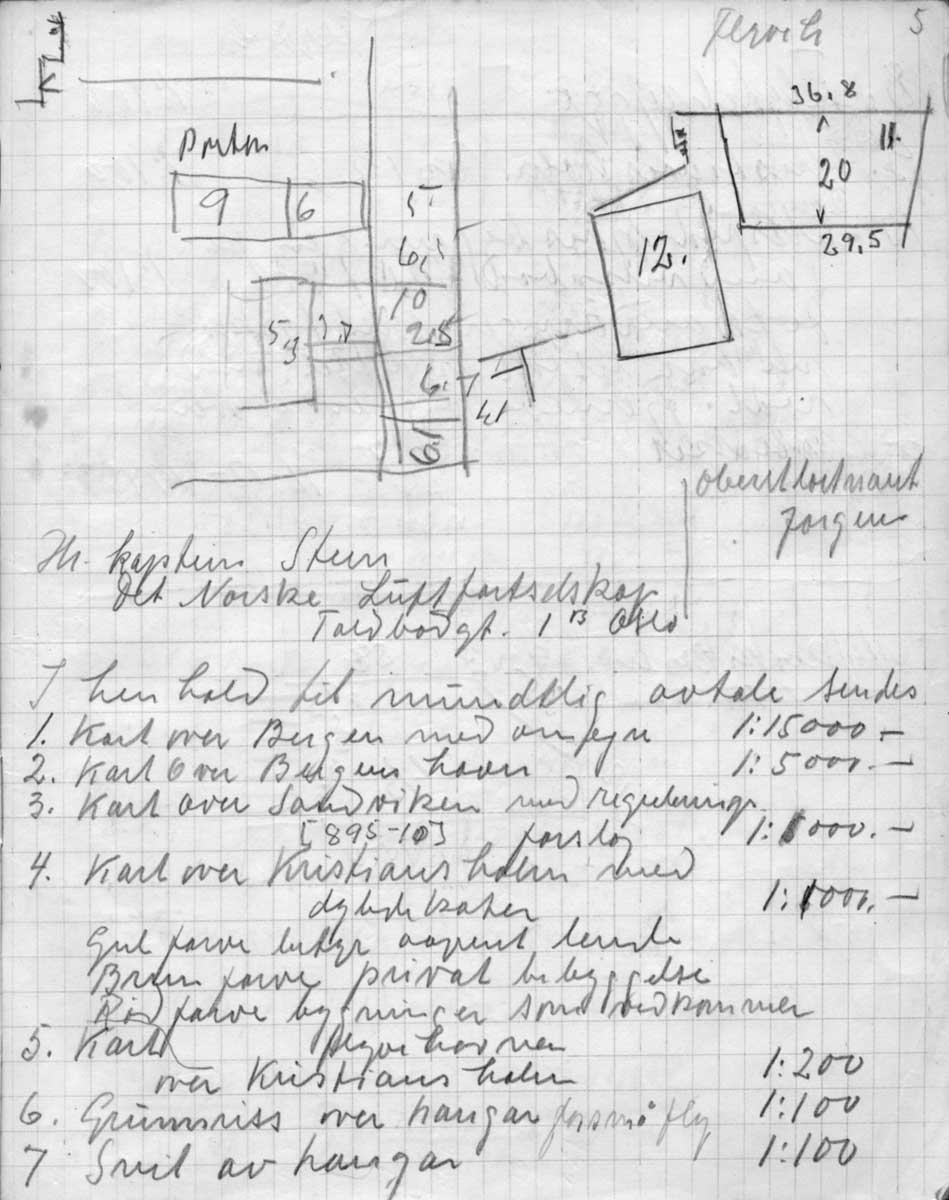 5
36.8
11.
20
29,5
Ponton
9 6 5
6,1
12.
10
5,3 2.5
6.
6.1
oberstløitnant
Jørgen
Hr. kaptein Steen
Det Norske Luftfartselskap
Toldbodgt. 1 B Oslo
I henhold til mundtlig avtale sendes
1. Kart over Bergen med omegn 1:15000.-
2. Kart over Bergens havn 1:5000.-
3. Kart over Sandviken med regulerings
[895-10] forslag 1:1000.-
4. Kart over Kristiansholm med
dybdekoter 1:1000.-
Gul farve betyr aapent lende
Brun farve privat bebyggelse
Rød farve bygninger som vedkommer
5. Kart flyvehavnen
over Kristiansholm 1:200
6. Grunnriss over hangar for små fly 1:100
7 Snit av hangar 1:100